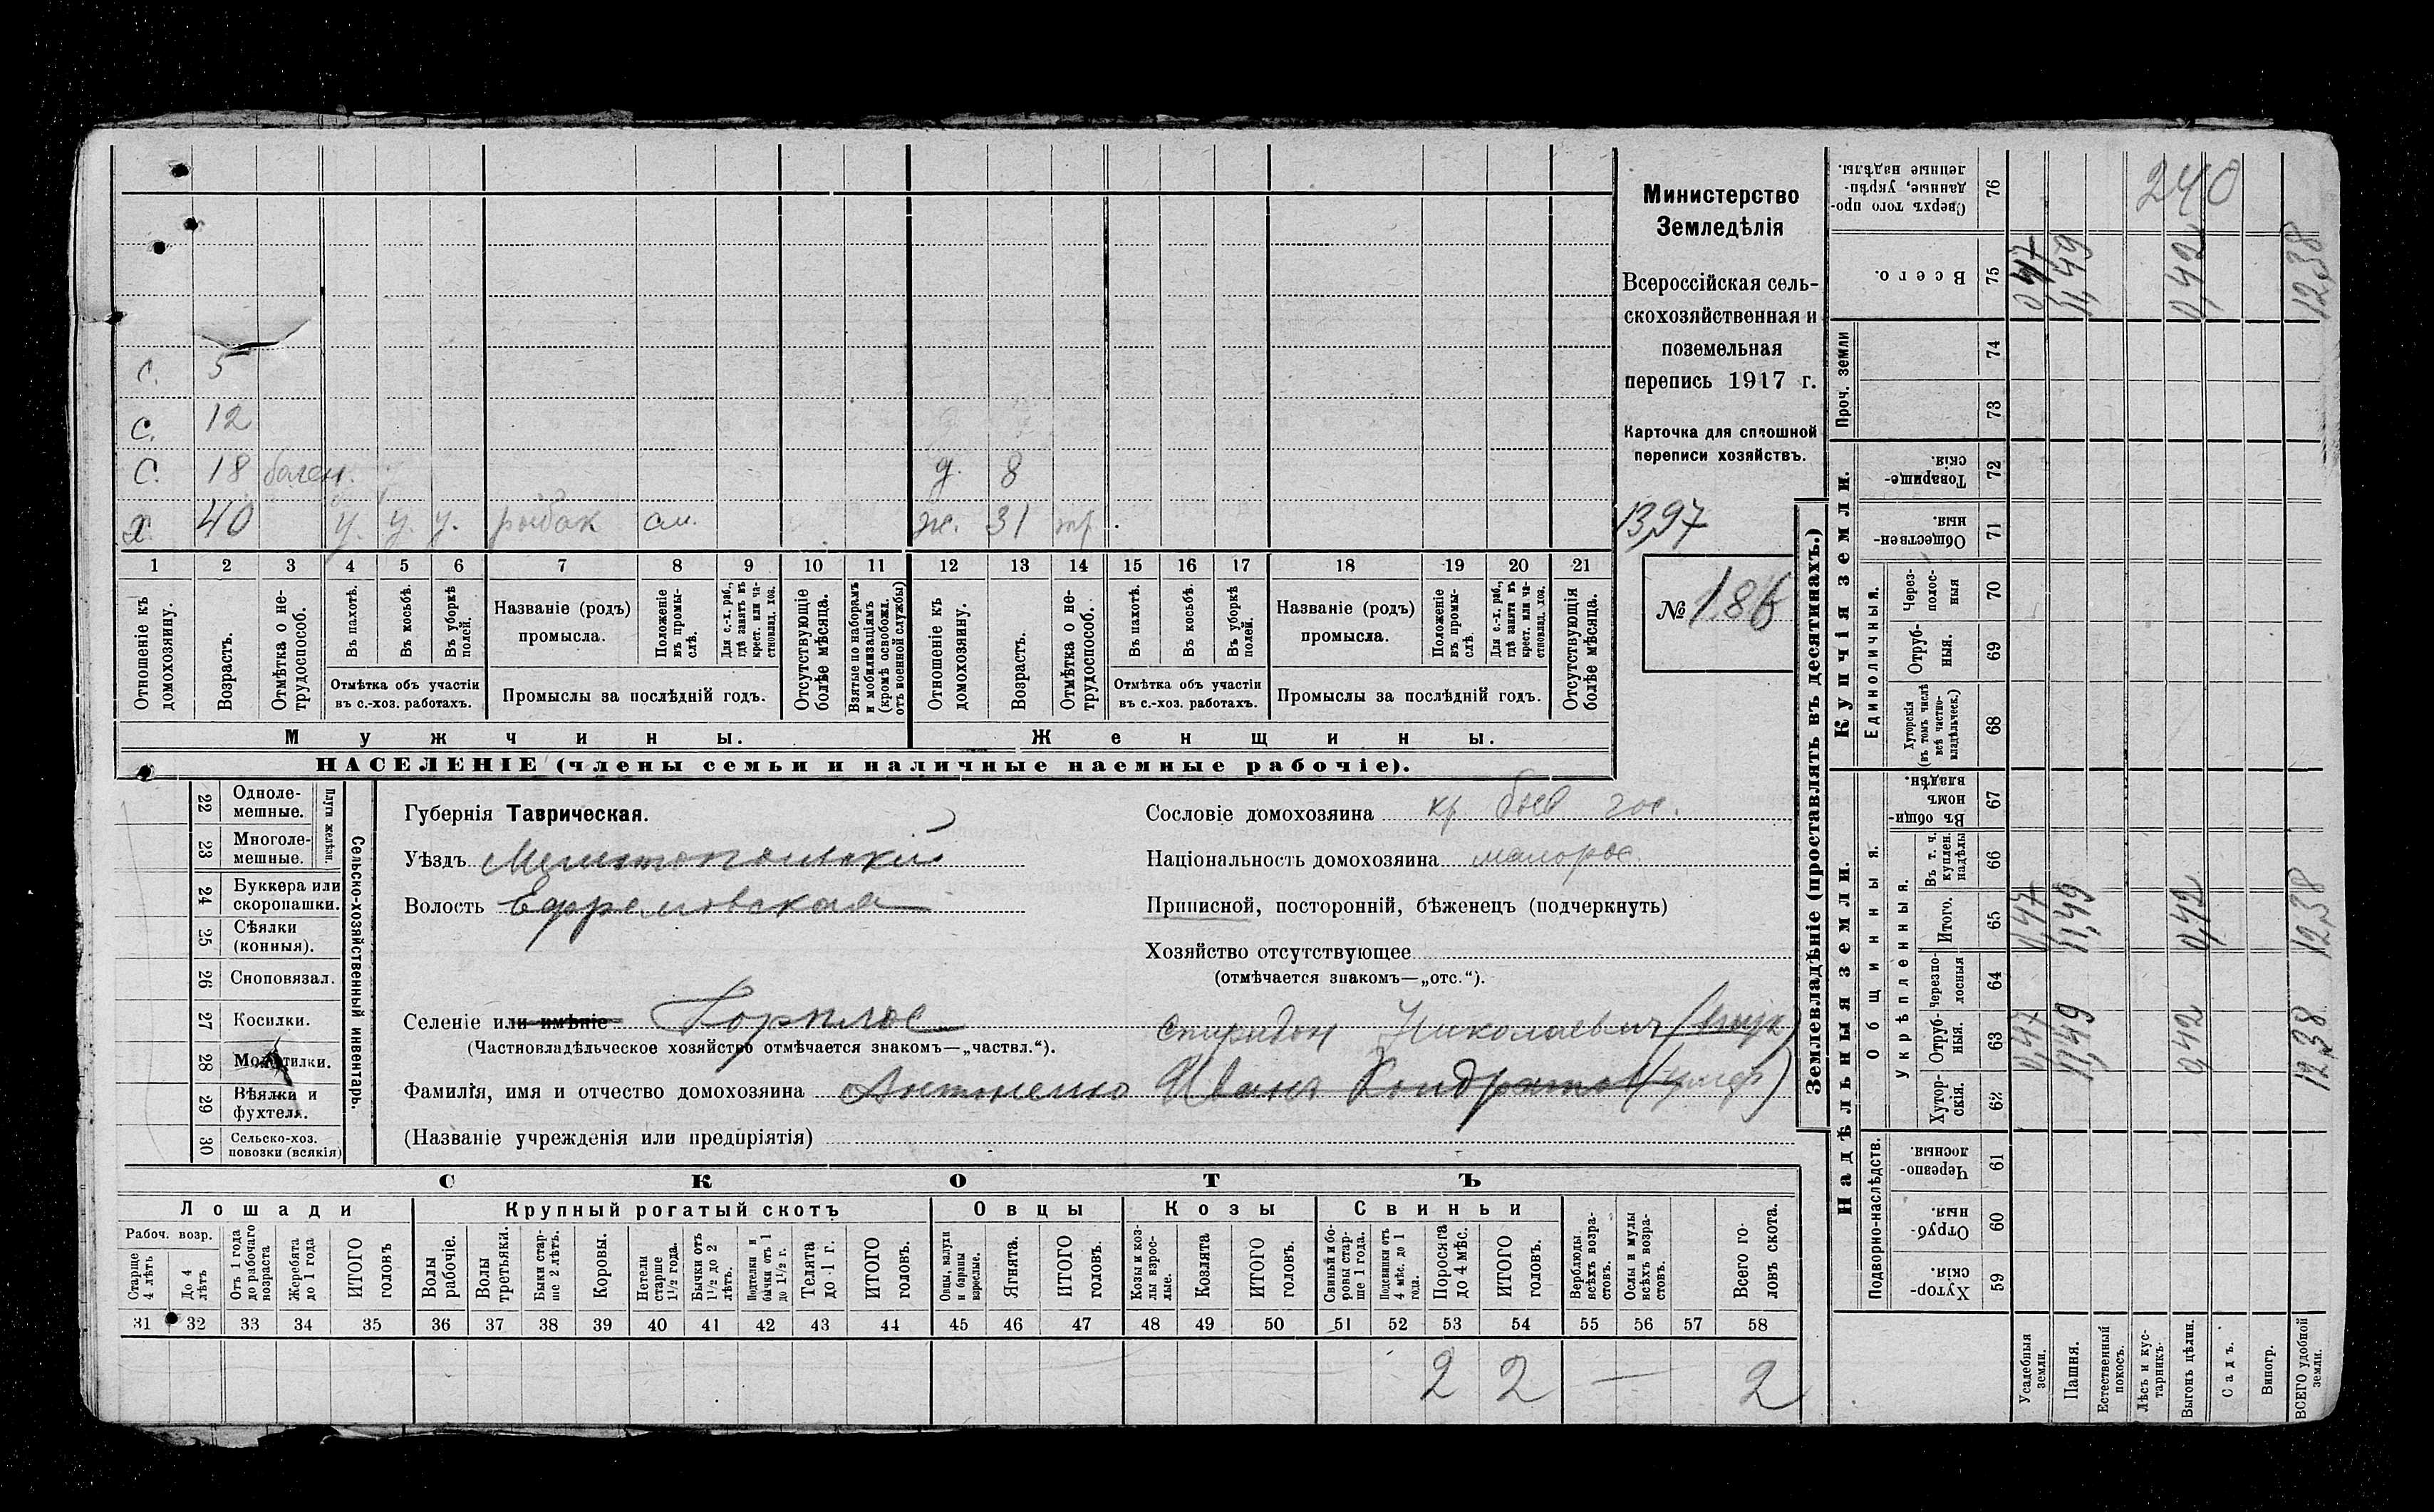 с. 5
с. 12
с. 18 болен. д. 8
х. 40 у. у. у. рыбак ж. 31
1 2 3 4 5 6 7 8 9 10 11 12 13 14 15 16 17 18 19 20 21
Отношеніе къ домохозяину.
Возрастъ.
Отмѣтка о не-
трудоспособ.
Въ пахотѣ.
Въ косьбѣ.
Въ уборкѣ
полей.
Отмѣтка объ участіи
въ с.-хоз. работахъ.
Названіе (родъ)
промысла.
Положеніе
въ промы-
слѣ.
Для с.-х. раб.,
гдѣ занятъ въ
крест. или ча-
стновлад. хоз.
Промыслы за послѣдній годъ.
Отсутствующіе
болѣе мѣсяца.
Взятые по наборамъ
и мобилизаціямъ
(кромѣ освобожд.
отъ военной службы)
Отношеніе къ
домохозяину.
Возрастъ.
Отмѣтка о не-
трудоспособ.
Въ пахотѣ.
Въ косьбѣ.
Въ уборкѣ
полей.
Отмѣтка объ участіи
въ с.-хоз. работахъ.
Названіе (родъ)
промысла.
Положеніе
въ промы-
слѣ.
Для с.-х. раб.,
гдѣ занята въ
крест. или ча-
стновлад. хоз.
Промыслы за послѣдній годъ.
Отсутствующія
болѣе мѣсяца.
Мужчины.
Женщины.
НАСЕЛЕНІЕ (члены семьи и наличные наемные рабочіе).
Министерство
Земледѣлія
Всероссійская сель-
скохозяйственная и
поземельная
перепись 1917 г.
Карточка для сплошной
переписи хозяйствъ.
13,97
№ 186
22 Одноле-
мешные.
23 Многоле-
мешные.
Плуги желѣзн.
24 Буккера или
скоропашки.
25 Сѣялки
(конныя).
26 Сноповязал.
27 Косилки.
28 Молотилки.
29 Вѣялки и
фухтеля.
30 Сельско-хоз.
повозки (всякія)
Сельско-хозяйственный инвентарь.
Губернія Таврическая.
Уѣздъ Мелитопольскій
Волость Ефремовская
Селеніе или имѣніе Горплос
(Частновладѣльческое хозяйство отмѣчается знакомъ—„частвл.“).
Сословіе домохозяина кр. быв. гос.
Національность домохозяина малорос.
Приписной, посторонній, бѣженецъ (подчеркнуть)
Хозяйство отсутствующее
(отмѣчается знакомъ—„отс.“).
Спиридон Николаевич (внук)
Фамилія, имя и отчество домохозяина Антоненко Иван Кондратов (умер)
(Названіе учрежденія или предпріятія)
СКОТЪ
Лошади
Рабоч. возр.
Старше
4 лѣтъ
До 4
лѣтъ
Отъ 1 года
до рабочаго
возраста
Жеребята
до 1 года
ИТОГО
головъ
Крупный рогатый скотъ
Волы
рабочіе.
Волы
третьяки.
Быки стар-
ше 2 лѣтъ.
Коровы.
Нетели
старше
1½ года.
Бычки отъ
1½ до 2
лѣтъ.
Подтелки и
бычки отъ 1
до 1½ г.
Телята
до 1 г.
ИТОГО
головъ.
Овцы
Овцы, валухи
и бараны
взрослые.
Ягнята.
ИТОГО
головъ.
Козы
Козы и коз-
лы взрос-
лые.
Козлята
ИТОГО
головъ.
Свиньи
Свиньи и бо-
ровы стар-
ше 1 года.
Подсвинки отъ
4 мѣс. до 1
года.
Поросята
до 4 мѣс.
ИТОГО
головъ.
Верблюды
всѣхъ возра-
стовъ.
Ослы и мулы
всѣхъ возра-
стовъ.
Всего го-
ловъ скота.
31 32 33 34 35 36 37 38 39 40 41 42 43 44 45 46 47 48 49 50 51 52 53 54 55 56 57 58
2 2 — 2
Землевладѣніе (проставлять въ десятинахъ.)
Сверхъ того про-
данные, укрѣп-
ленные надѣлы.
76 240
Всего.
75 0,47 11,49 0,42 12,38
Проч. земли
74
73
Купчія земли.
Товарище-
скія.
72
Обществен-
ныя.
71
Единоличныя.
Через-
полос-
ныя
70
Отруб-
ныя.
69
Хуторскія
(въ томъ числѣ
всѣ частно-
владѣльческ.)
68
Надѣльныя земли.
Общинныя.
Въ общи-
номъ
владѣн.
67
Укрѣпленныя.
Въ т. ч.
куплен.
надѣлы
66
Итого.
65 0,47 11,49 0,42 12,38
Черезпо-
лосныя
64
Отруб-
ныя.
63 0,47 11,49 0,42 12,38
Хутор-
скія.
62
Подворно-наслѣдств.
Черезпо-
лосныя.
61
Отруб-
ныя.
60
Хутор-
скія.
59
Усадебныя
земли.
Пашня.
Естественный
покосъ.
Лѣсъ и кус-
тарникъ.
Выгонъ цѣлин.
Садъ.
Виногр.
ВСЕГО удобной
земли.